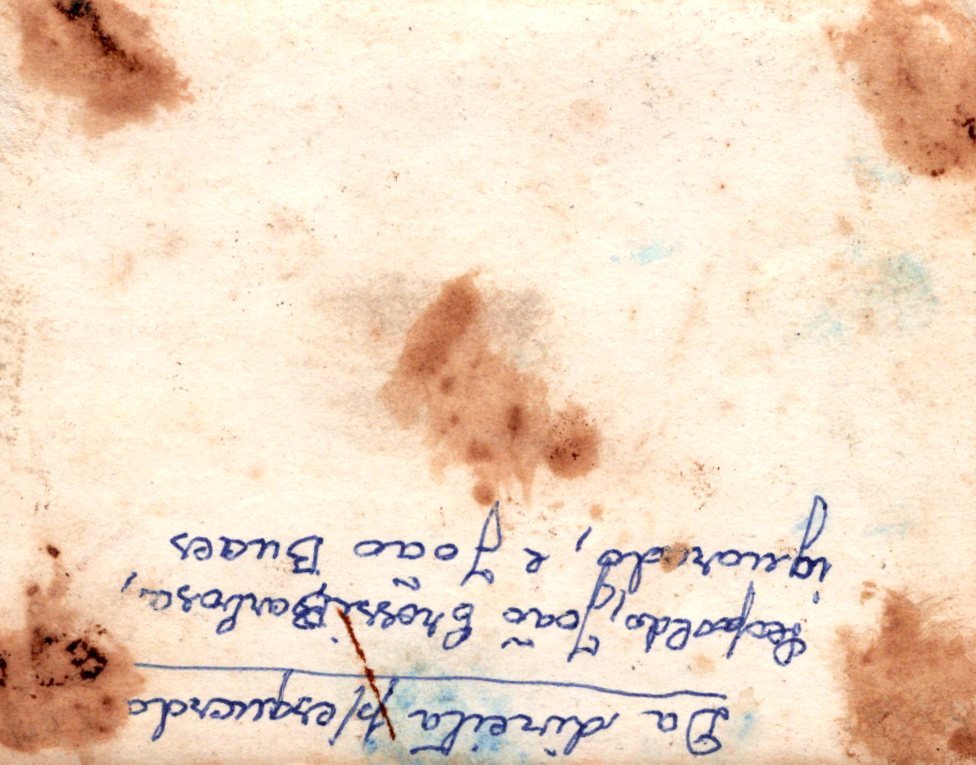 Da direita p/ esquerda
Leopoldo, João Grossi, Barbosa,
ignorado, e João Buaes